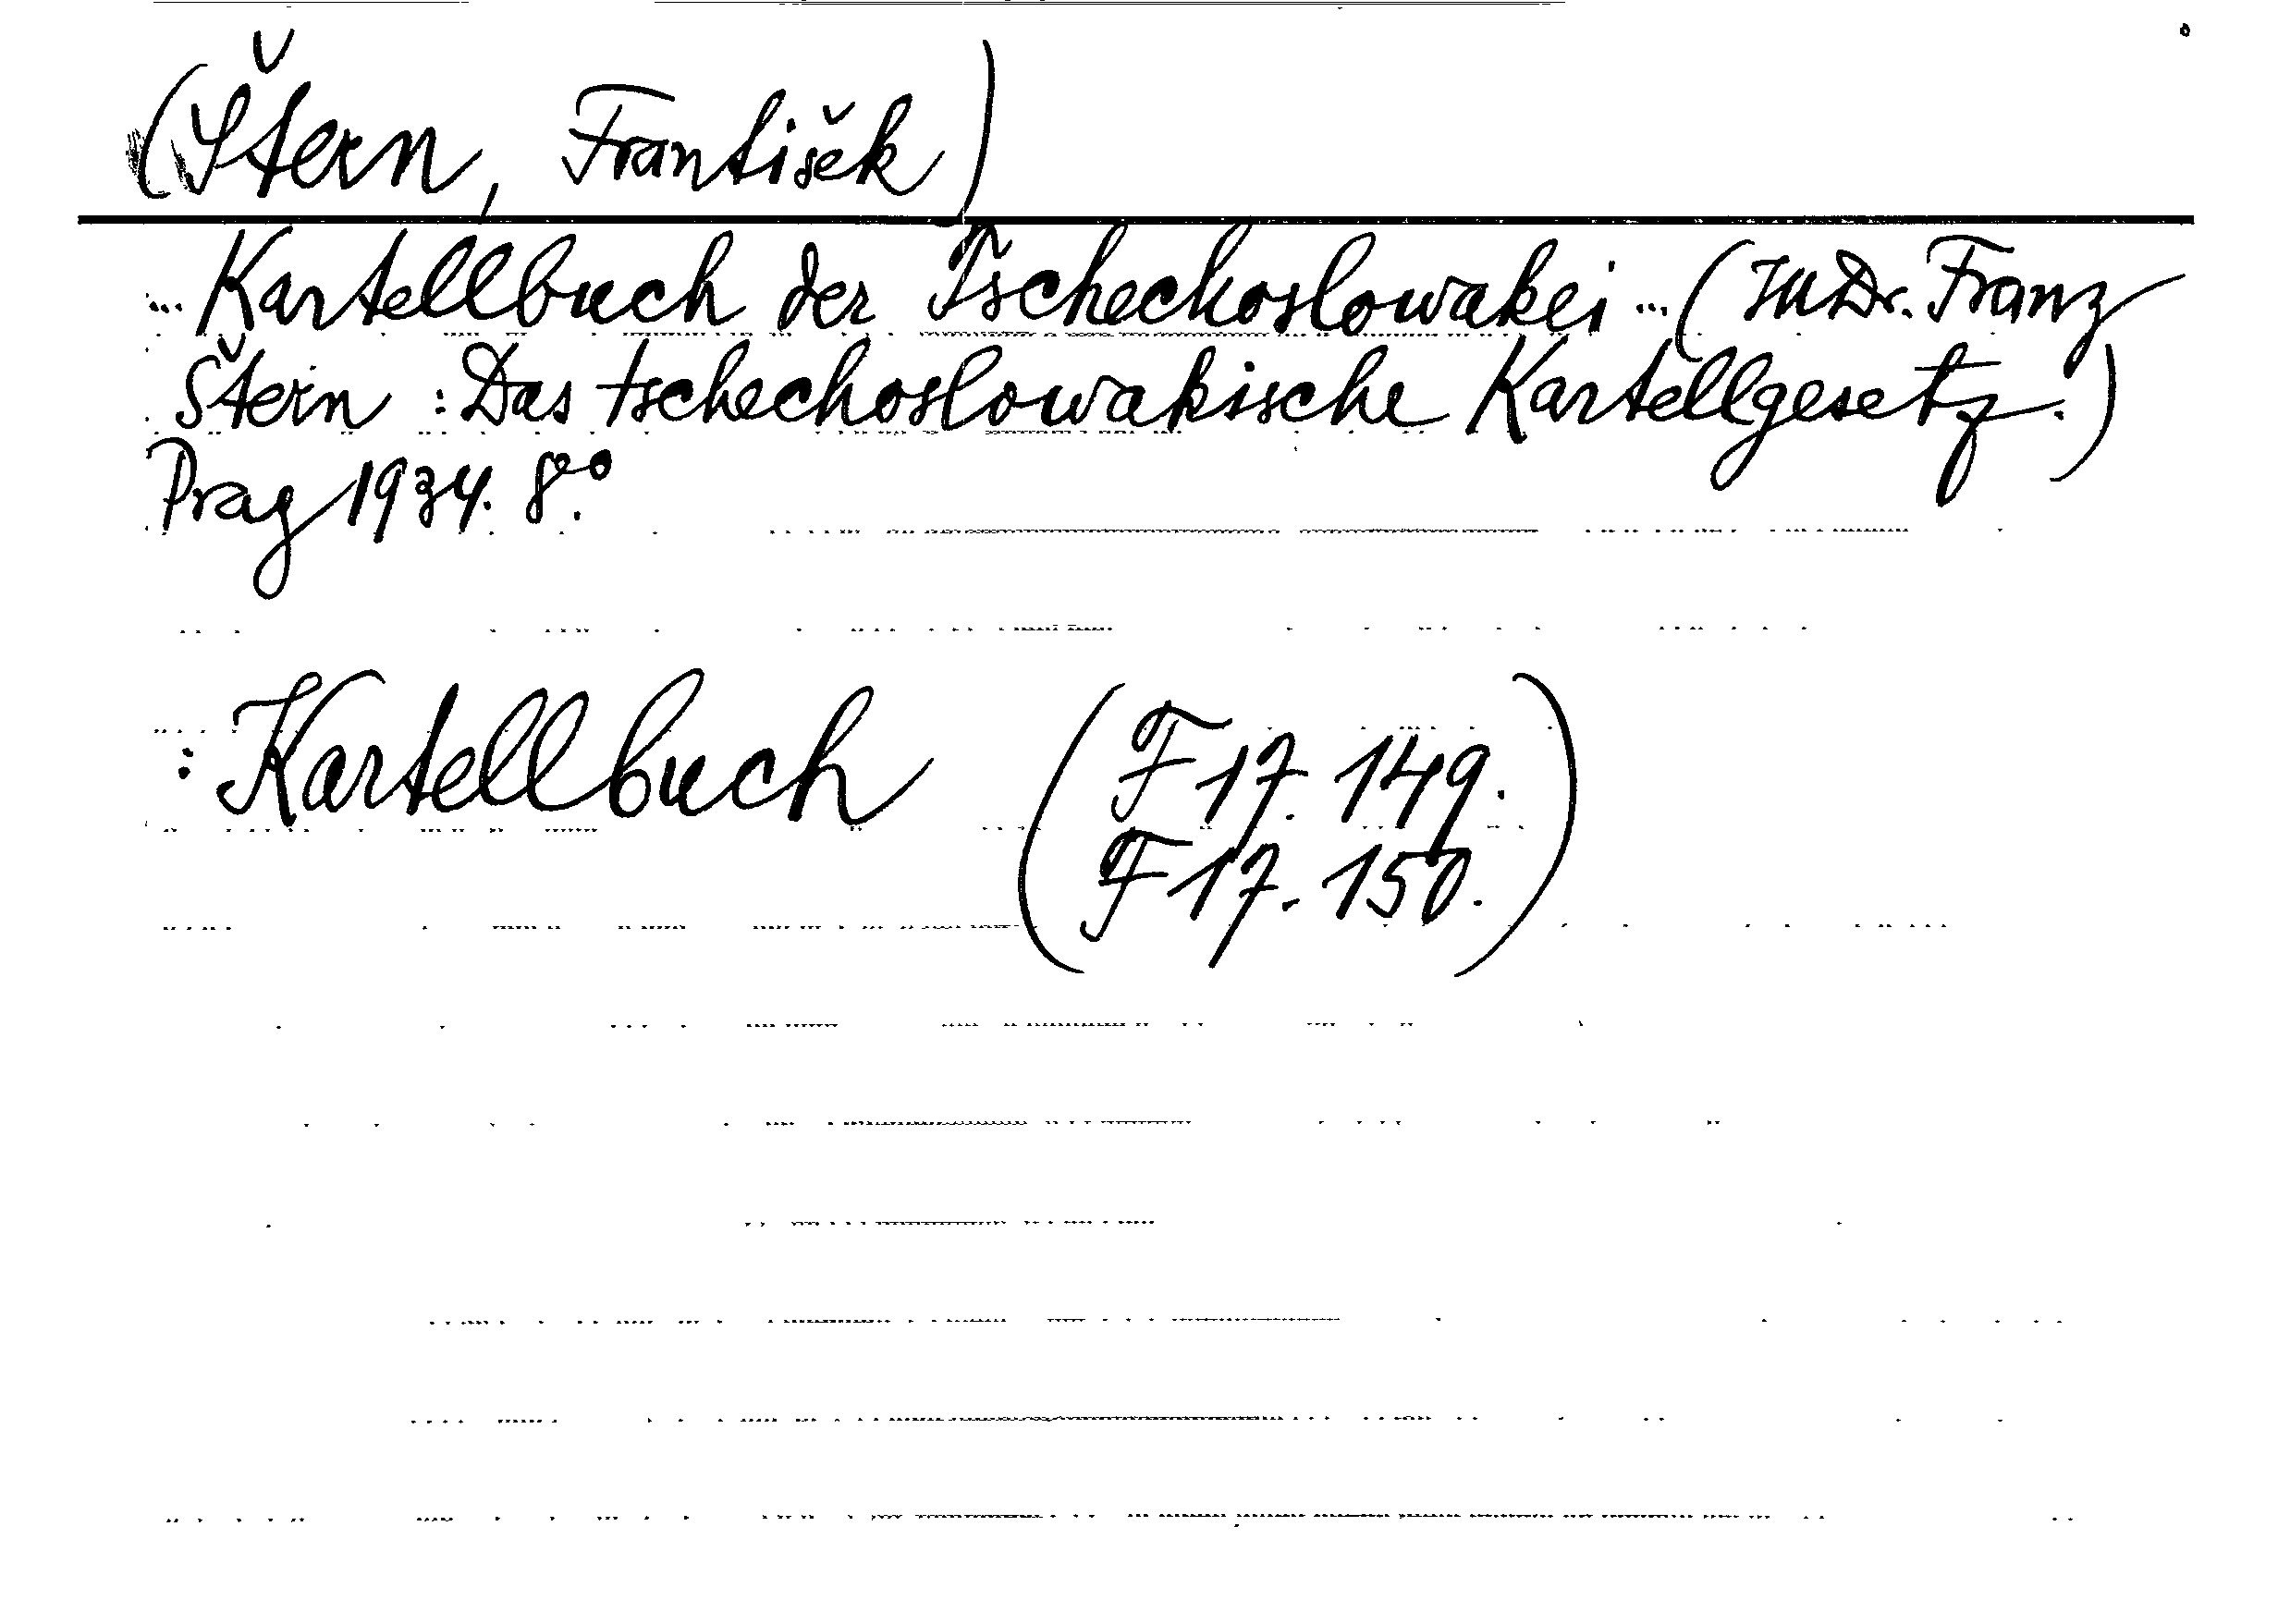 (Štern, František)
... Kartellbuch der Tschechoslowakei ... (JUDr. Franz
Štern : Das tschechoslowakische Kartellgesetz.)
Prag 1934. 8°.
: Kartellbuch (F 17. 149.
F 17. 150.)